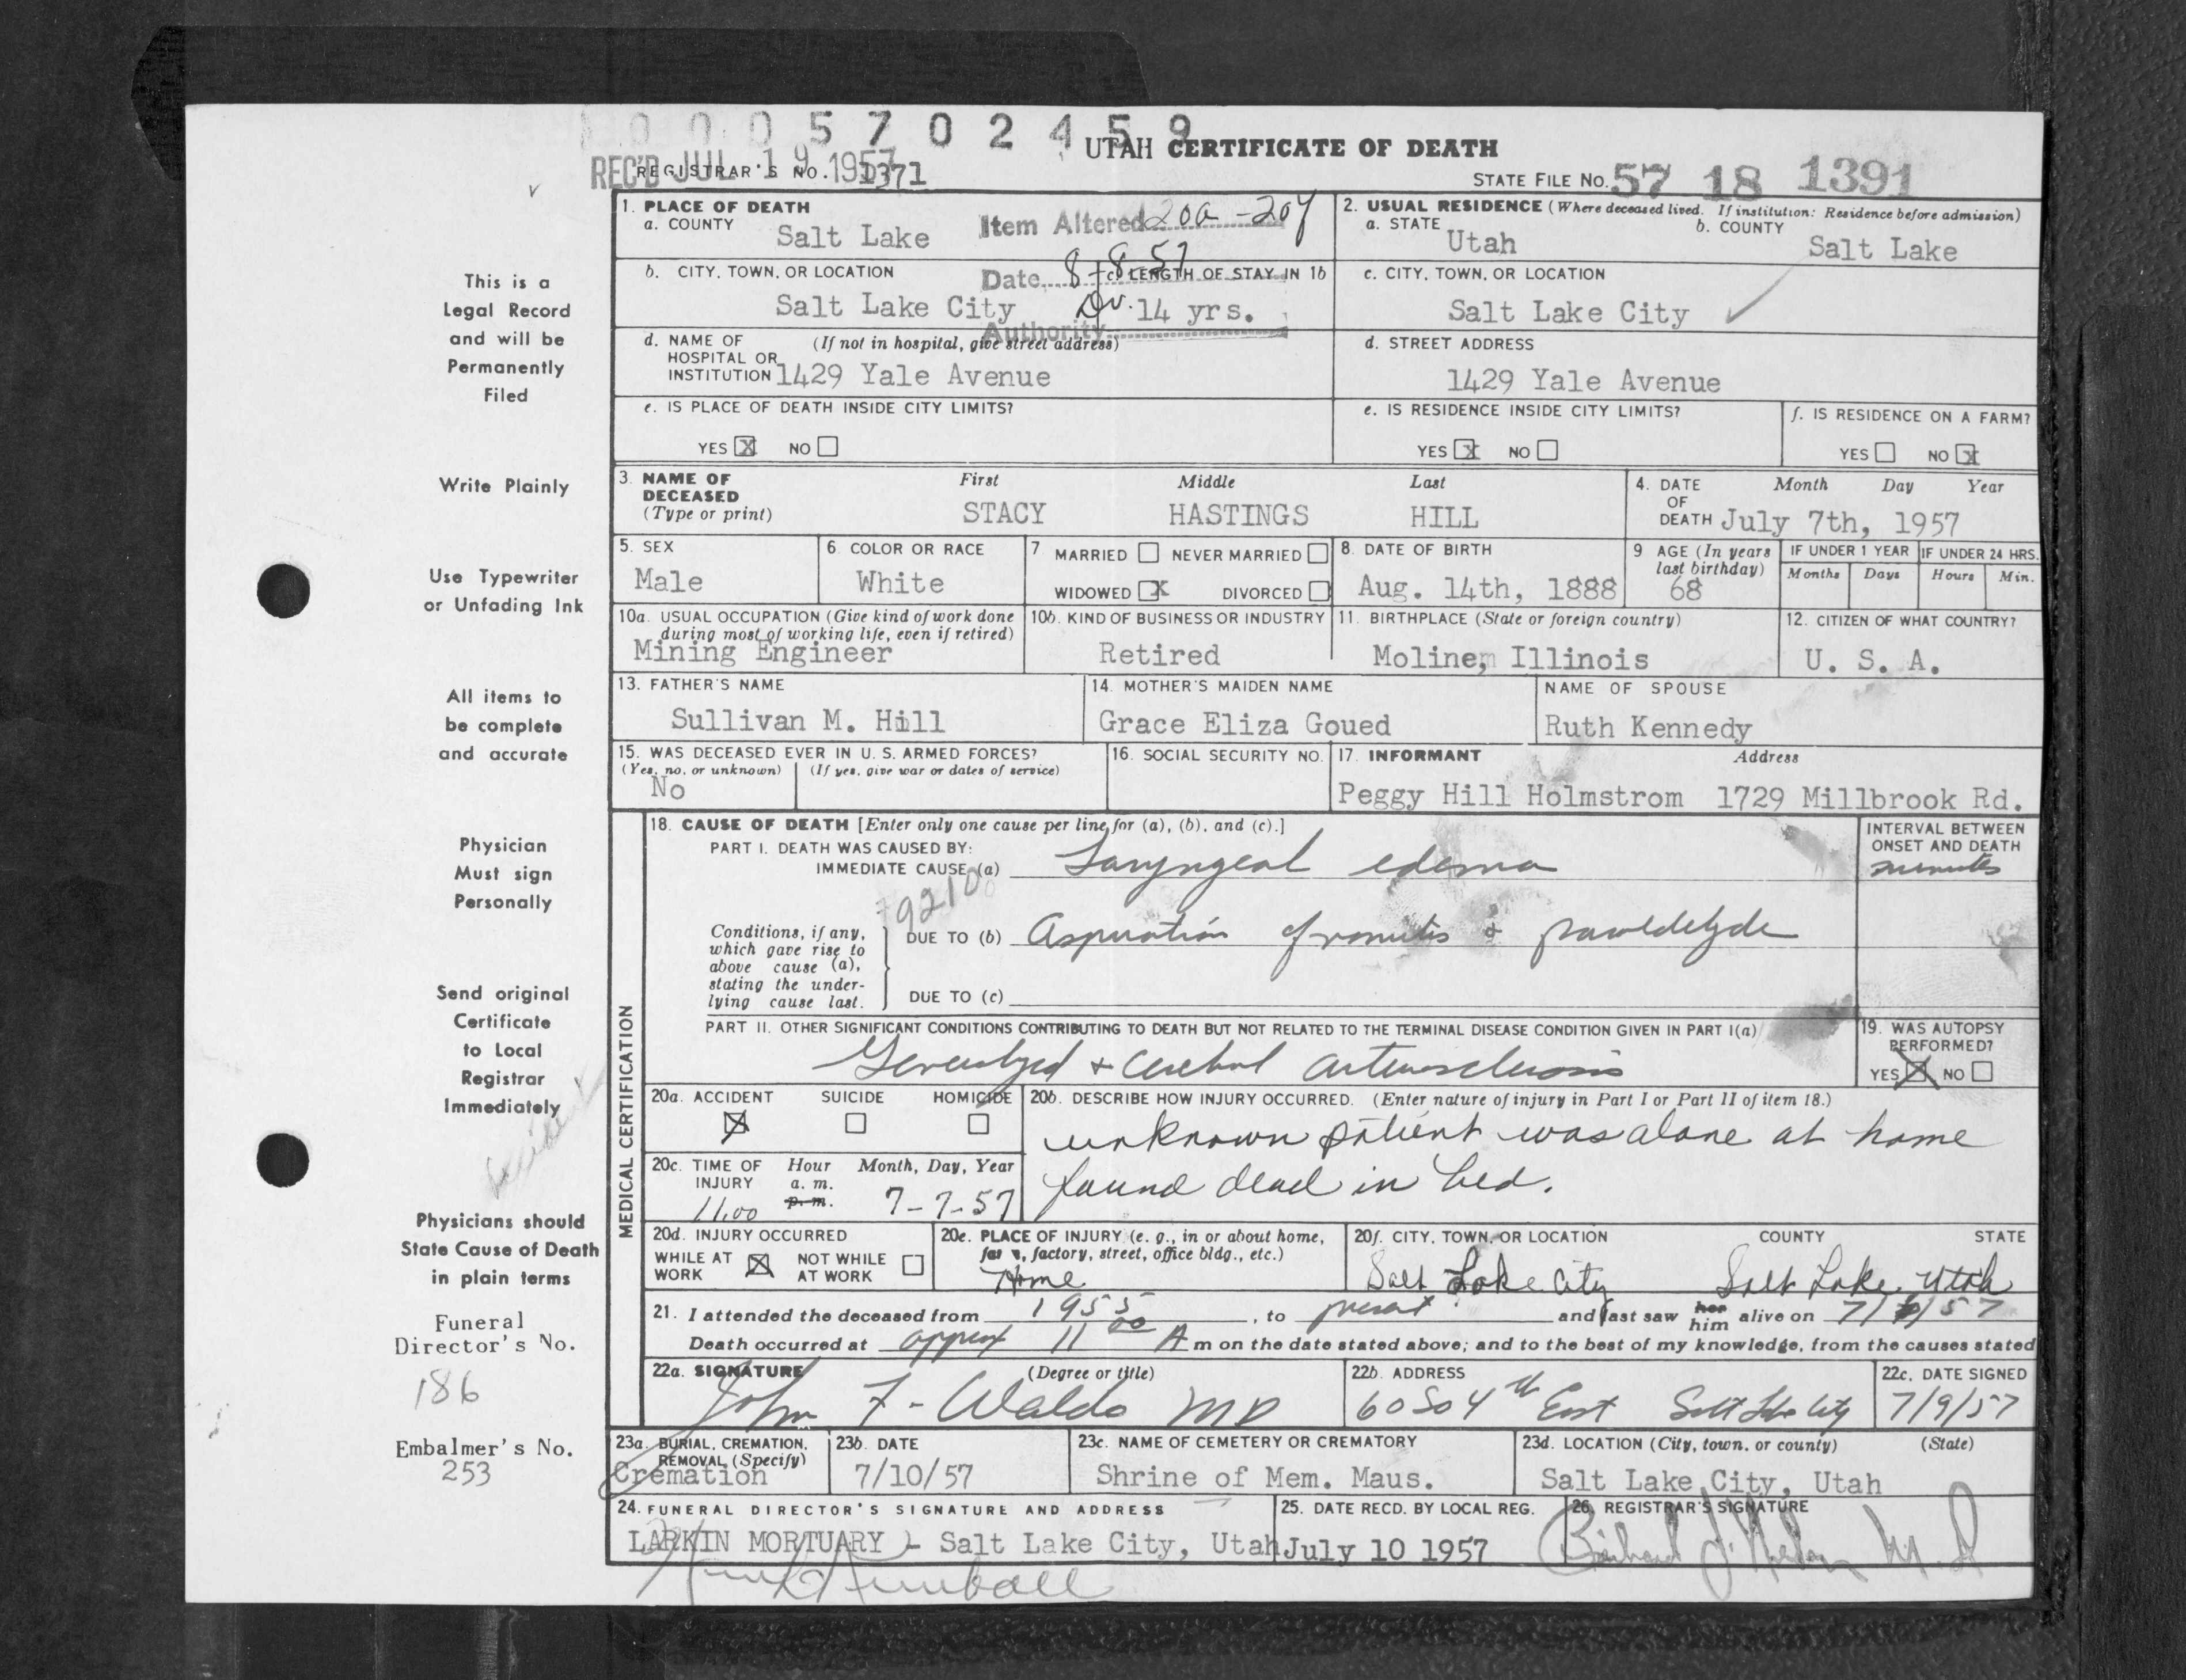 0 0 0 5 7 0 2 4 5 9
UTAH CERTIFICATE OF DEATH
REC'D JUL 19 1957
REGISTRAR'S NO. 1371
STATE FILE NO. 57 18 1391
1. PLACE OF DEATH
a. COUNTY Salt Lake
Item Altered 20a - 20f
Date 8-8-57
Authority
2. USUAL RESIDENCE (Where deceased lived. If institution: Residence before admission)
a. STATE Utah
b. COUNTY Salt Lake
b. CITY, TOWN, OR LOCATION Salt Lake City
c. LENGTH OF STAY IN 1b 14 yrs.
c. CITY, TOWN, OR LOCATION Salt Lake City
d. NAME OF HOSPITAL OR INSTITUTION (If not in hospital, give street address) 1429 Yale Avenue
d. STREET ADDRESS 1429 Yale Avenue
e. IS PLACE OF DEATH INSIDE CITY LIMITS?
YES X NO
e. IS RESIDENCE INSIDE CITY LIMITS?
YES X NO
f. IS RESIDENCE ON A FARM?
YES NO X
3. NAME OF DECEASED (Type or print)
First Middle Last
STACY HASTINGS HILL
4. DATE OF DEATH Month Day Year
July 7th, 1957
5. SEX Male
6. COLOR OR RACE White
7 MARRIED NEVER MARRIED
WIDOWED X DIVORCED
8. DATE OF BIRTH Aug. 14th, 1888
9 AGE (In years last birthday) 68
IF UNDER 1 YEAR Months Days
IF UNDER 24 HRS. Hours Min.
10a. USUAL OCCUPATION (Give kind of work done during most of working life, even if retired)
Mining Engineer
10b. KIND OF BUSINESS OR INDUSTRY Retired
11. BIRTHPLACE (State or foreign country) Moline, Illinois
12. CITIZEN OF WHAT COUNTRY? U. S. A.
13. FATHER'S NAME Sullivan M. Hill
14. MOTHER'S MAIDEN NAME Grace Eliza Goued
NAME OF SPOUSE Ruth Kennedy
15. WAS DECEASED EVER IN U. S. ARMED FORCES?
(Yes, no, or unknown) (If yes, give war or dates of service)
No
16. SOCIAL SECURITY NO.
17. INFORMANT Address
Peggy Hill Holmstrom 1729 Millbrook Rd.
MEDICAL CERTIFICATION
18. CAUSE OF DEATH [Enter only one cause per line for (a), (b), and (c).]
PART I. DEATH WAS CAUSED BY:
IMMEDIATE CAUSE (a) Laryngeal edema
INTERVAL BETWEEN ONSET AND DEATH
minutes
9210
Conditions, if any, which gave rise to above cause (a), stating the underlying cause last.
DUE TO (b) Aspiration of vomitis & paraldehyde
DUE TO (c)
PART II. OTHER SIGNIFICANT CONDITIONS CONTRIBUTING TO DEATH BUT NOT RELATED TO THE TERMINAL DISEASE CONDITION GIVEN IN PART I(a)
Generalized + cerebral arteriosclerosis
19. WAS AUTOPSY PERFORMED?
YES X NO
20a. ACCIDENT SUICIDE HOMICIDE
X
20b. DESCRIBE HOW INJURY OCCURRED. (Enter nature of injury in Part I or Part II of item 18.)
unknown patient was alone at home
found dead in bed.
20c. TIME OF INJURY Hour Month, Day, Year
a. m.
p. m.
11.00 7-7-57
20d. INJURY OCCURRED
WHILE AT WORK X NOT WHILE AT WORK
20e. PLACE OF INJURY (e. g., in or about home, farm, factory, street, office bldg., etc.)
Home
20f. CITY, TOWN, OR LOCATION COUNTY STATE
Salt Lake City Salt Lake, Utah
21. I attended the deceased from 1955, to present and last saw her him alive on 7/ /57
Death occurred at approx 11 00 A m on the date stated above; and to the best of my knowledge, from the causes stated
22a. SIGNATURE (Degree or title)
John F. Waldo MD
22b. ADDRESS
60 So 4th East Salt Lake City
22c. DATE SIGNED
7/9/57
23a. BURIAL, CREMATION, REMOVAL (Specify)
Cremation
23b. DATE 7/10/57
23c. NAME OF CEMETERY OR CREMATORY
Shrine of Mem. Maus.
23d. LOCATION (City, town, or county) (State)
Salt Lake City, Utah
24. FUNERAL DIRECTOR'S SIGNATURE AND ADDRESS
LARKIN MORTUARY - Salt Lake City, Utah
25. DATE RECD. BY LOCAL REG.
July 10 1957
26. REGISTRAR'S SIGNATURE
This is a
Legal Record
and will be
Permanently
Filed
Write Plainly
Use Typewriter
or Unfading Ink
All items to
be complete
and accurate
Physician
Must sign
Personally
Send original
Certificate
to Local
Registrar
Immediately
Physicians should
State Cause of Death
in plain terms
Funeral
Director's No.
186
Embalmer's No.
253